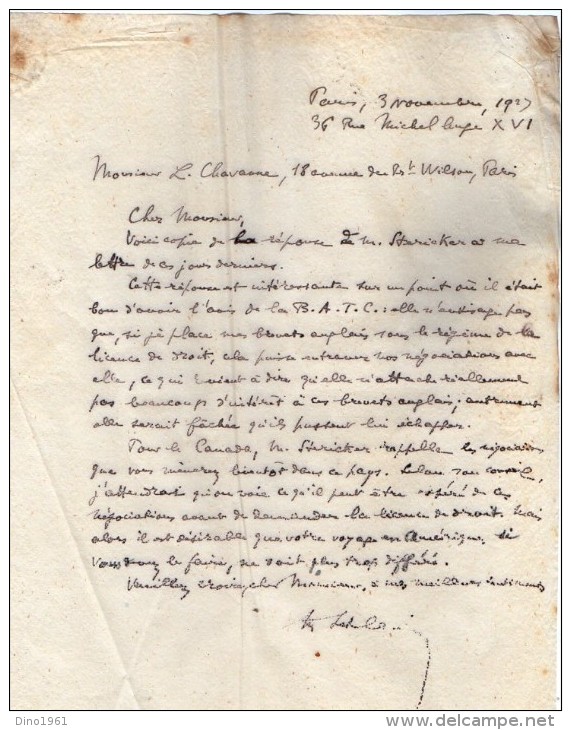 Paris, 3 novembre, 1927
36 Rue Michel Ange XVI
Monsieur L. Chavanne, 18 avenue du Pst Wilson, Paris
Cher Monsieur,
Voici copie de la réponse de M. Stericker à ma
lettre de ces jours derniers.
Cette réponse est intéressante sur un point où il était
bon d'avoir l'avis de la B.A.T.C.: elle n'envisage pas
que, si je place mes brevets anglais sous le régime de la
licence de droit, cela puisse entraver nos négociations avec
elle, ce qui revient à dire qu'elle n'attache réellement
pas beaucoup d'intérêt à ces brevets anglais; autrement
elle serait fâchée qu'ils pussent lui échapper.
Pour le Canada, M. Stericker rappelle les négociations
que vous mènerez bientôt dans ce pays. Selon son conseil,
j'attendrai qu'on voie ce qu'il peut être espéré de ces
négociations avant de demander la licence de droit. Mais
alors il est désirable que votre voyage en Amérique, si
vous devez le faire, ne soit plus trop différé.
Veuillez croire, cher Monsieur, à mes meilleurs sentiments
Dino1961
delcampe.net